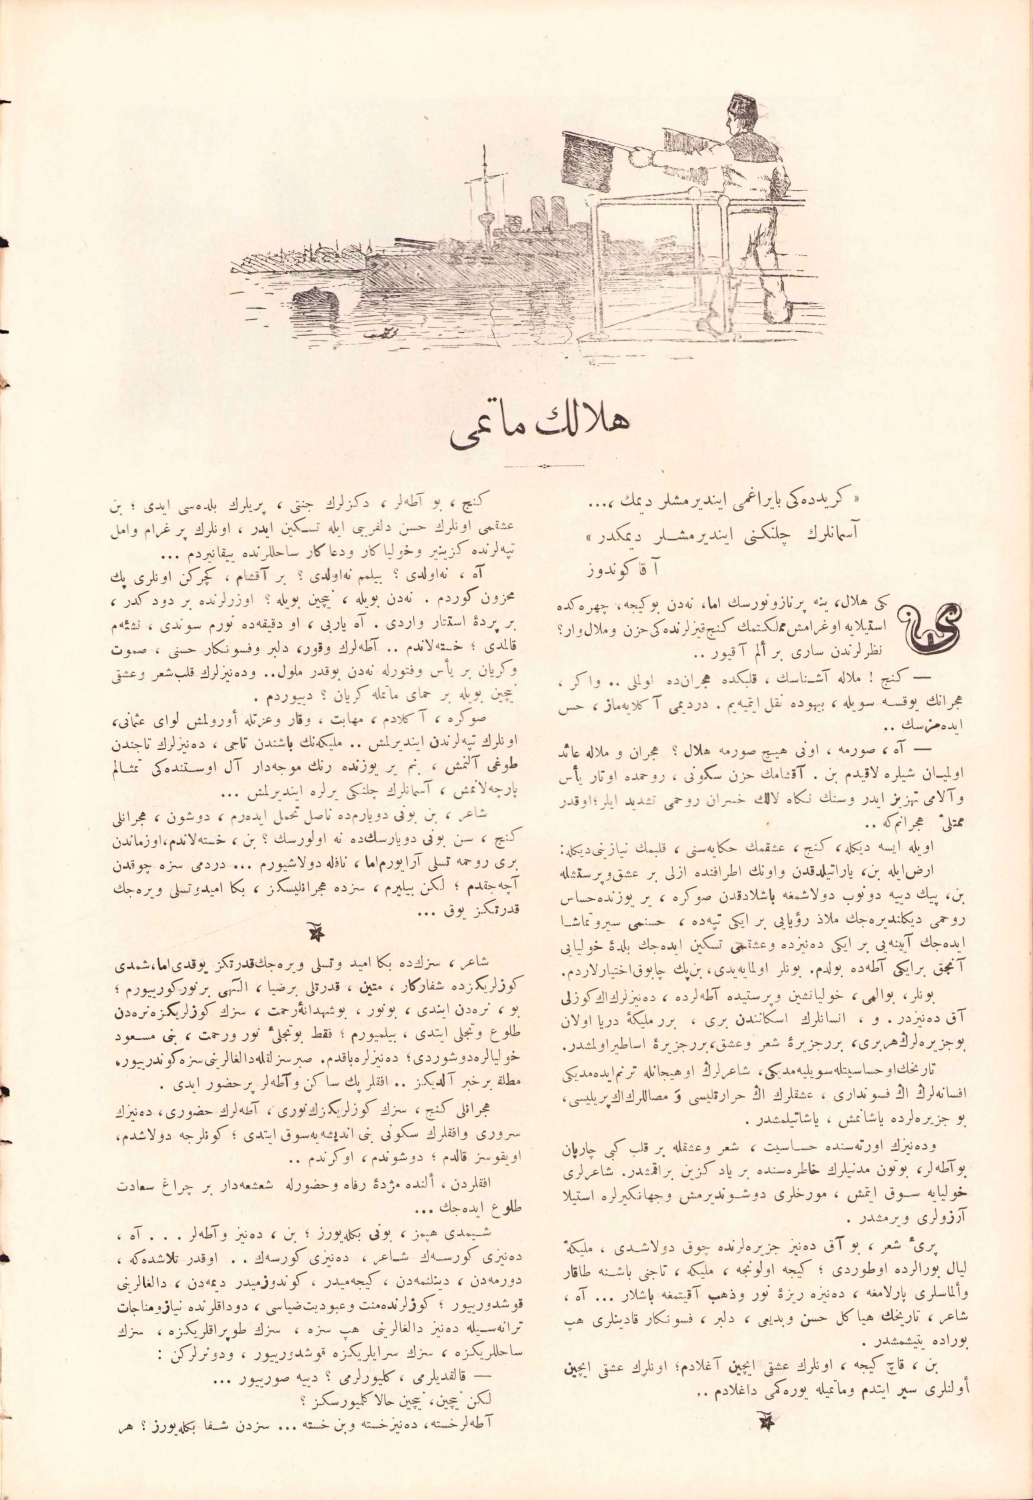 هلالك ماتمى
« كريددەكى بايراغمى اينديرمشلر ديمك ،...
آسمانلرك چلنكنى اينديرمشلر ديمكدر »
آقا كوندوز
كى هلال، ينه پرنازونورسك اما، نەدن بوكيجه، چهرەكده
استيلايه اوغرامش مملكتمك كنج قيزلرندەكى حزن وملال وار؟
نظرلرندن سارى بر ألم آقيور ..
— كنج ! ملاله آشناسك ، قلبكده هجران‌ده اولملى .. واكر ،
هجرانك يوقسه سويله ، بيهوده نقل ايتميه‌يم . درديمى آكلايه‌ماز ، حس
ايدەمزسك ..
— آه ، صورمه ، اونى هيچ صورمه هلال ؟ هجران و ملاله عائد
اوليان شيلره لاقيدم بن . آقشامك حزن سكونى ، روحمده اوتار يأس
وآلامى تهزيز ايدر وسنك نكاه لالك خسران روحمى تشديد ايلر؛ اوقدر
ممتلىٔ هجرانم‌كه ..
اويله ايسه ديكله، كنج ، عشقمك حكايه‌سنى ، قلبمك نيازينى ديكله:
ارض ايله بن، ياراتيلدقدن واونك اطرافنده ازلى بر عشق و پرستشله
بن، پيك دييه دونوب دولاشمغه باشلادقدن صوكره ، بر يوزنده حساس
روحمى ديكلنديرەجك ملاذ رؤيايى بر ايكى تپه‌ده ، حسنمى سيروتماشا
ايده‌جك آيينه‌يى بر ايكى دەنيزده وعشقمى تسكين ايده‌جك بلدۀ خوليايى
آنجق برايكى آطه‌ده بولدم. بونلر اولمايه‌يدى، بن پك چابوق اختيارلاردم.
بونلر، بوالهى ، خوليانشين وپرستيده آطه‌لرده ، دەنيزلرك اك كوزلى
آق دەنيزدر. و ، انسانلرك اسكاتندن برى ، برر مليكۀ دريا اولان
بوجزيرەلرك هربرى، بررجزيرۀ شعر وعشق، بررجزيرۀ اساطير اولمشدر.
تاريخك اوحساسيتله سويليه‌مديكى، شاعرلرك اوهيجانله ترنم ايده‌مديكى
افسانه‌لرك اك فسوندارى ، عشقلرك اك حرارتليسى و مصاللرك اك پريليسى،
بو جزيرەلرده ياشانمش ، ياشاتيلمشدر .
ودەنيزك اورته‌سنده حساسيت ، شعر وعشقله بر قلب كبى چارپان
بوآطه‌لر، بوتون مدنيلرك خاطره‌سنده بر ياد كزين براقمشدر. شاعرلرى
خوليايه سوق ايتمش ، مورخلرى دوشونديرمش وجهانكيرلره استيلا
آرزولرى ويرمشدر .
پرىٔ شعر ، بو آق دەنيز جزيرەلرنده چوق دولاشدى ، مليكۀ
ليال بورالرده اوطوردى ؛ كيجه اولونجه ، مليكه ، تاجنى باشنه طاقار
وألماسلرى پارلامغه ، دەنيزه ريزۀ نور وذهب آقيتمغه باشلار ... آه ،
شاعر ، تاريخك هياكل حسن وبديعى ، دلبر ، فسونكار قادينلرى هپ
بوراده يتيشمشدر .
بن ، قاچ كيجه ، اونلرك عشقى ايچين آغلادم؛ اونلرك عشقى ايچين
أولنلرى سير ايتدم وماتميله يوره‌كمى داغلادم ..
كنج ، بو آطه‌لر ، دكزلرك جنتى ، پريلرك بلده‌سى ايدى ؛ بن
عشقمى اونلرك حسن دلفريبى ايله تسكين ايدر ، اونلرك پر غرام وامل
تپه‌لرنده كزينير وخولياكار ودعاكار ساحللرنده ييقانيردم ...
آه ، نه‌اولدى ؟ بيلمم نه‌اولدى ؟ بر آقشام ، كچركن اونلرى پك
محزون كوردم . نه‌دن بويله ، نيچين بويله ؟ اوزرلرنده بر دود كدر ،
بر پردۀ استتار واردى . آه ياربى ، او دقيقه‌ده نورم سوندى ، نشئه‌م
قالمدى ؛ خسته‌لاندم .. آطه‌لرك وقور، دلبر وفسونكار حسنى ، صموت
وكريان بر يأس وفتورله نه‌دن بوقدر ملول.. ودەنيزلرك قلب شعر وعشق
نيچين بويله بر حماى ماتمله كريان ؟ دييوردم .
صوكره ، آكلادم ، مهابت ، وقار وعزتله أورولمش لواى عثمانى،
اونلرك تپه‌لرندن اينديرلمش .. مليكه‌نك باشندن تاجى ، دەنيزلرك تاجندن
طوغى آلنمش ، بنم بر يوزنده رنك موجه‌دار آل اوستنده‌كى تمثالم
پارچه‌لانمش ، آسمانلرك چلنكى يرلره اينديرلمش ...
شاعر ، بن بونى دويارم‌ده ناصل تحمل ايده‌رم ، دوشون ، هجرانلى
كنج ، سن بونى دويارسك‌ده نه اولورسك ؟ بن ، خسته‌لاندم، اوزماندن
برى روحمه تسلى آرايورم اما ، نافله دولاشيورم ... دردمى سزه چوقدن
آچه‌جقدم ؛ لكن بيليرم ، سزده هجرانليسكز ، بكا اميدوتسلى ويره‌جك
قدرتكز يوق ...
شاعر ، سزك‌ده بكا اميد وتسلى ويره‌جك قدرتكز يوقدى اما، شمدى
كوزلريكزده شفاركار ، متين ، قدرتلى برضيا ، الٓهى برنور كوريورم ؛
بو ، نره‌دن ايتدى ، بونور ، بوشهدانۀ رحمت ، سزك كوزلريكزه نره‌دن
طلوع وتجلى ايتدى ، بيلميورم ؛ فقط بوتجلىٔ نور ورحمت ، بنى مسعود
خوليالره دوشوردى؛ دەنيزلره باقدم. صبرسزلقله دالغالرينى سزه كوندرييور،
مطلقا برخبر آلديكز .. افقلر پك ساكن وآطه‌لر پرحضور ايدى .
هجرانلى كنج ، سزك كوزلريكزك نورى ، آطه‌لرك حضورى، دەنيزك
سرورى وافقلرك سكونى بنى انديشه‌يه سوق ايتدى ؛ كونلرجه دولاشدم،
اويقوسز قالدم ؛ دوشوندم ، اوكرندم ..
افقلردن ، ألنده مژدۀ رفاه وحضورله شعشعه‌دار بر چراغ سعادت
طلوع ايده‌جك ...
شيمدى هپمز ، بونى بكله‌يورز ؛ بن ، دەنيز وآطه‌لر . . . آه ،
دەنيزى كورسه‌ك شاعر ، دەنيزى كورسه‌ك . . اوقدر تلاشده‌كه ،
دورمه‌دن ، ديكلنمه‌دن ، كيجه‌ميدر ، كوندوزميدر ديمه‌دن ، دالغالرينى
قوشدورييور ؛ كوزلرنده منت وعبوديت ضياسى ، دوداقلرنده نياز ومناجات
ترانه‌سيله دەنيز دالغالرينى هپ سزه ، سزك طوپراقلريكزه ، سزك
ساحللريكزه ، سزك سرايلريكزه قوشدورييور ، ودونرلركن :
— قالقديلرمى ، كليورلرمى ؟ دييه صورييور ...
لكن نيچين، نيچين حالا كلميورسكز ؟
آطه‌لرخسته، دەنيزخسته وبن خسته ... سزدن شفا بكله‌يورز ؟ هر